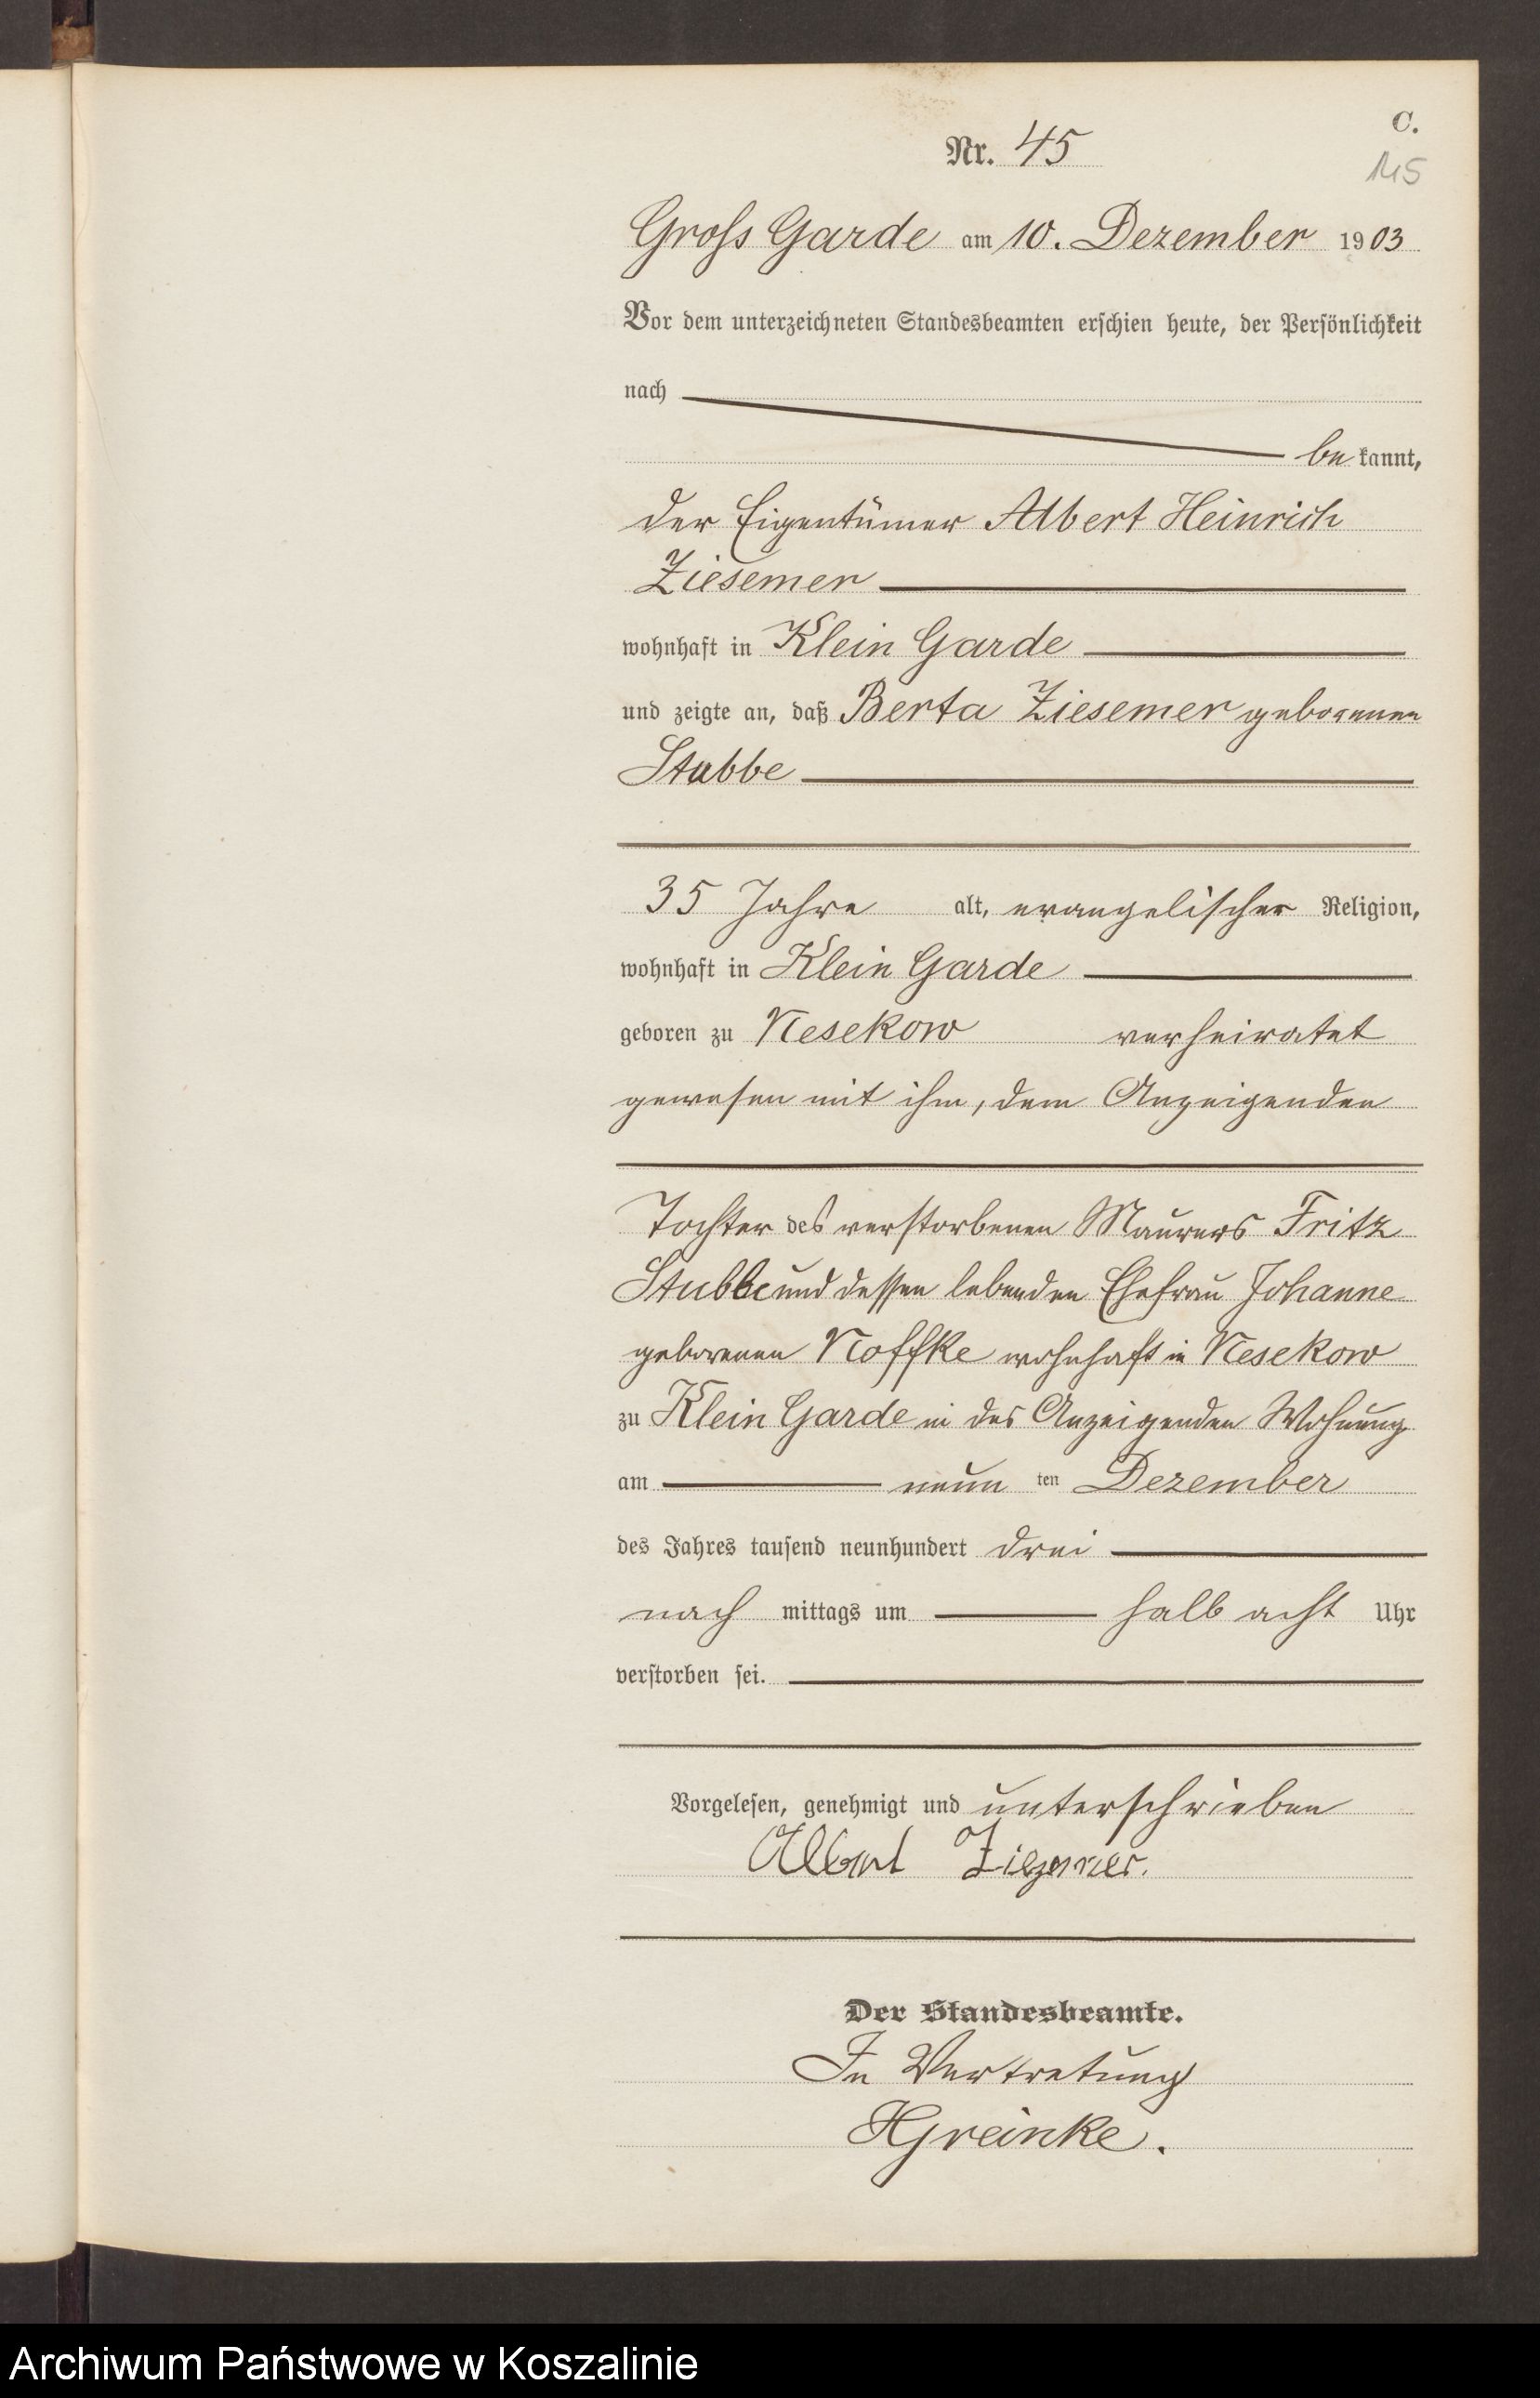 C.
Nr. 45
115
Gross Garde am 10. Dezember 1903
Vor dem unterzeichneten Standesbeamten erschien heute, der Persönlichkeit
nach
be kannt,
der Eigentümer Albert Heinrich
Ziesemer
wohnhaft in Klein Garde
und zeigte an, daß Berta Ziesemer geborenen
Stubbe
35 Jahre alt, evangelischer Religion,
wohnhaft in Klein Garde
geboren zu Nesekow verheiratet
gewesen mit ihm, dem Anzeigenden
Tochter des verstorbenen Maurers Fritz
Stubbe und dessen lebenden Ehefrau Johanne
geborenen Noffke wohnhaft in Nesekow
zu Klein Garde in des Anzeigenden Wohnung
am neun ten Dezember
des Jahres tausend neunhundert drei
nach mittags um halb acht Uhr
verstorben sei.
Vorgelesen, genehmigt und unterschrieben
Albert Ziesemer.
Der Standesbeamte.
In Vertretung
HGreinke.
Archiwum Państwowe w Koszalinie